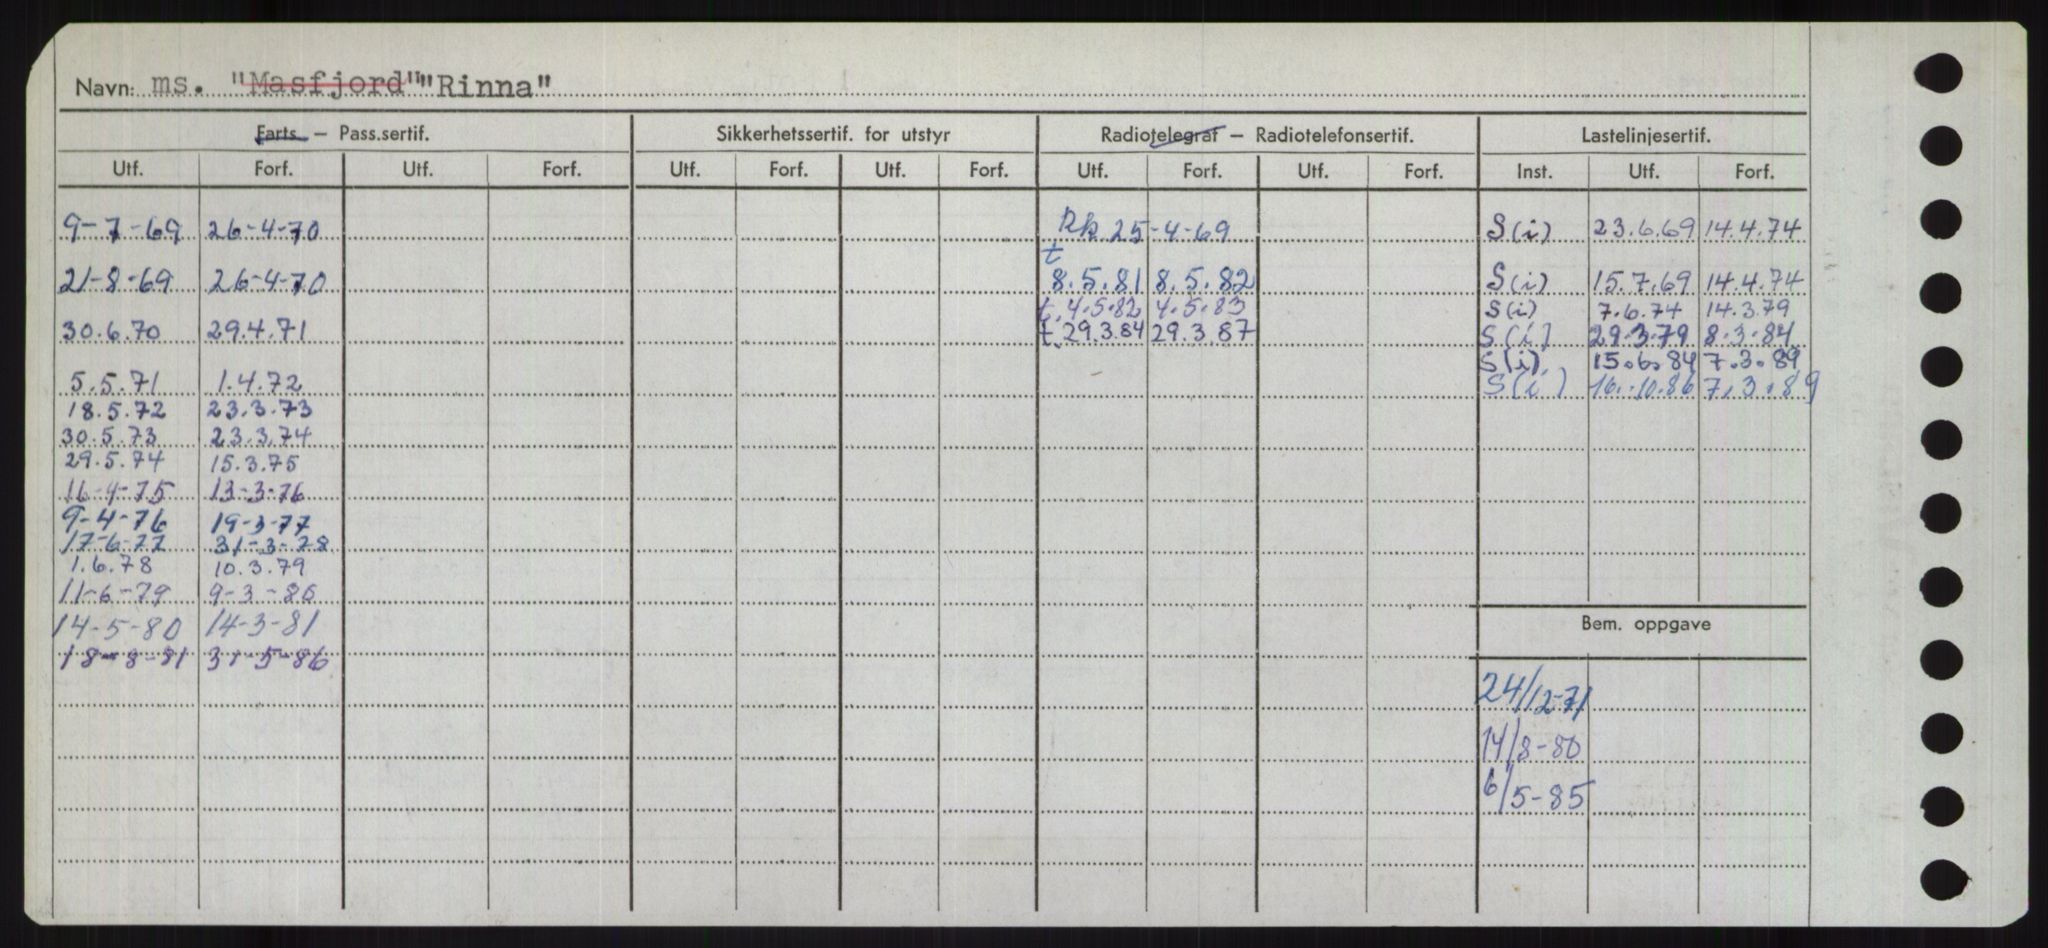 Navn: ms. "Masfjord" "Rinna"
Farts. – Pass.sertif. Sikkerhetssertif. for utstyr Radiotelegraf – Radiotelefonsertif. Lastelinjesertif.
Utf. Forf. Utf. Forf. Utf. Forf. Utf. Forf. Utf. Forf. Utf. Forf. Inst. Utf. Forf.
9-7-69 26-4-70 Rk 25-4-69 S(i) 23.6.69 14.4.74
t
21-8-69 26-4-70 8.5.81 8.5.82 S(i) 15.7.69 14.4.74
t. 4.5.82 4.5.83 S(i) 7.6.74 14.3.79
30.6.70 29.4.71 t. 29.3.84 29.3.87 S(i) 29.3.79 8.3.84
S(i) 15.6.84 7.3.89
5.5.71 1.4.72 S(i) 16.10.86 7.3.89
18.5.72 23.3.73
30.5.73 23.3.74
29.5.74 15.3.75
16-4-75 13-3-76
9-4-76 19-3-77
17-6-77 31-3-78
1.6.78 10.3.79
11-6-79 9-3-80
14-5-80 14-3-81
Bem. oppgave
18-8-81 31-5-86
24/12-71
14/8-80
6/5-85